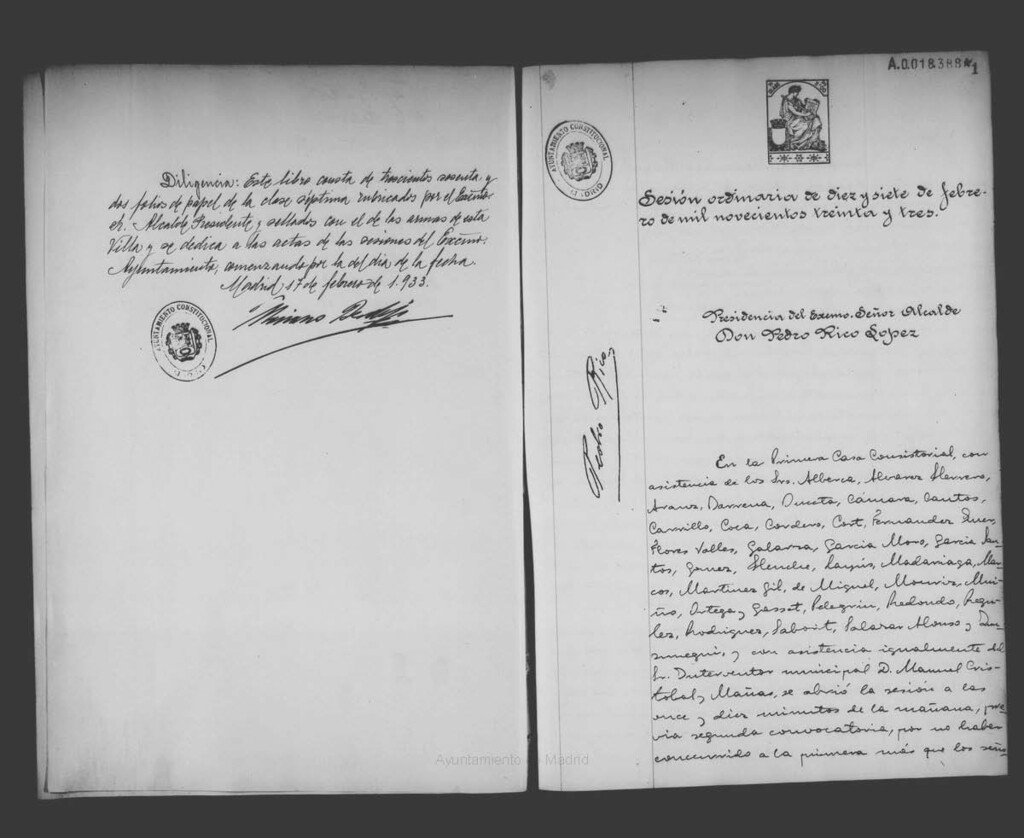 Diligencia: Este libro consta de trescientos sesenta y
dos folios de papel de la clase séptima rubricados por el Excmo.
Sr. Alcalde Presidente y sellados con el de las armas de esta
Villa y se dedica a las actas de las sesiones del Excmo.
Ayuntamiento, comenzando por la del día de la fecha.
Madrid 17 de febrero de 1.933.
Mariano
AYUNTAMIENTO CONSTITUCIONAL
A.0.018.388*1
AYUNTAMIENTO CONSTITUCIONAL
MADRID
Sesión ordinaria de diez y siete de febre-
ro de mil novecientos treinta y tres.
Presidencia del Excmo. Señor Alcalde
Don Pedro Rico López
Pedro Rico
En la Primera Casa Consistorial, con
asistencia de los Srs. Alberca, Alvarez Herrero,
Arauz, Barrena, Buceta, Cámara, Cantos,
Carrillo, Coca, Cordero, Cort, Fernandez Quer,
Flores Valles, Galarza, Garcia Moro, Garcia San-
tos, Gomez, Henche, Layús, Madariaga, Mar-
cos, Martinez Gil, de Miguel, Mouriz, Mui-
ño, Ortega y Gasset, Pelegrin, Redondo, Regu-
lez, Rodriguez, Saborit, Salazar Alonso y Zun-
zunegui, y con asistencia igualmente del
Sr. Interventor municipal D. Manuel Cris-
tobal y Mañas, se abrió la sesión a las
once y diez minutos de la mañana, pre-
via segunda convocatoria, por no haber
concurrido a la primera más que los seño-
Ayuntamiento de Madrid